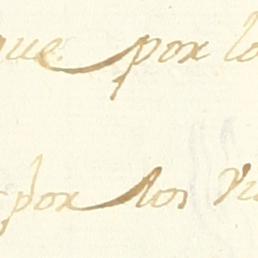 que por lo
por los